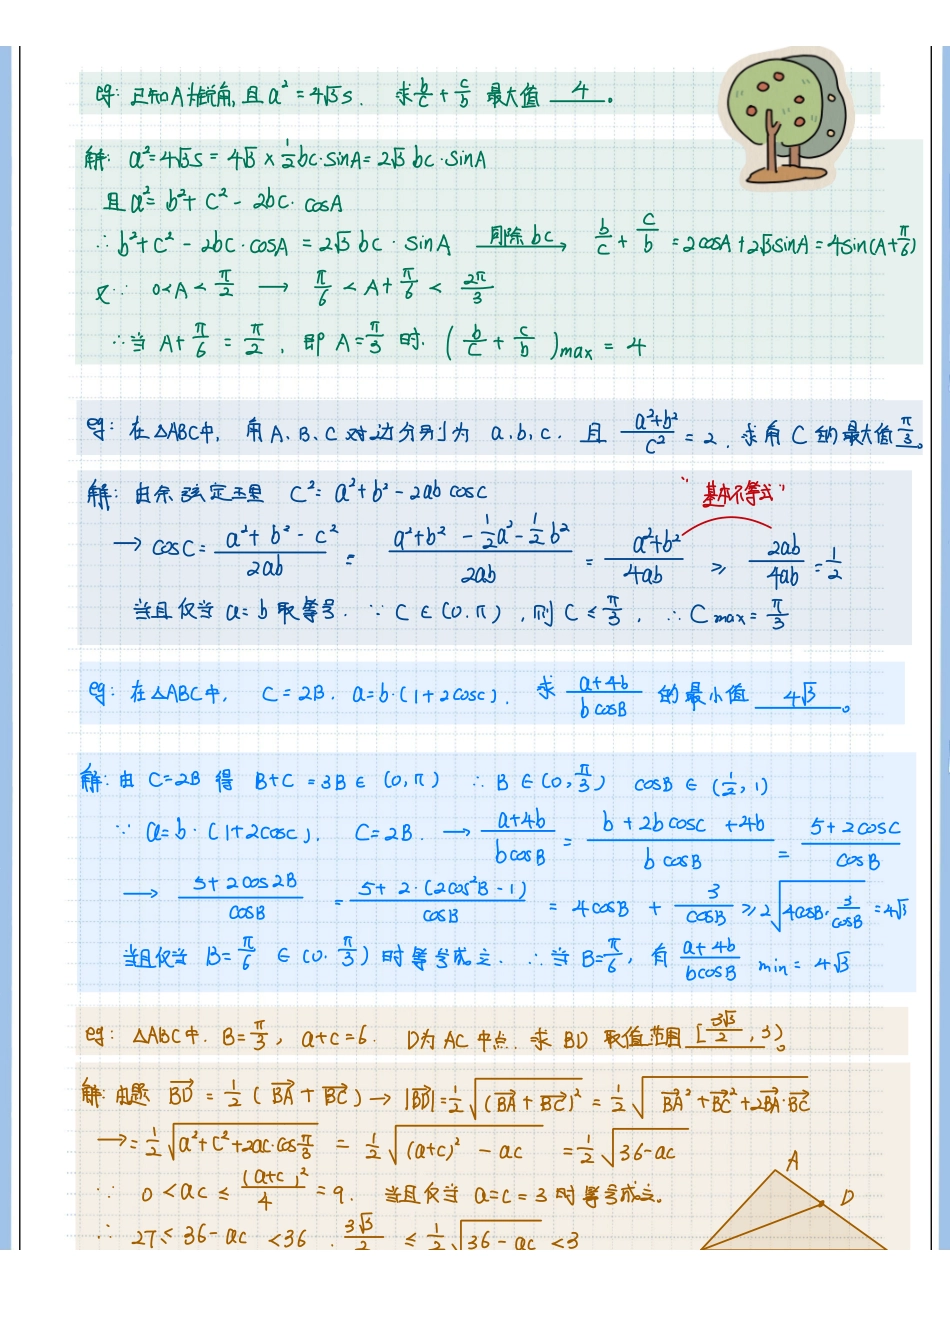 eg: 已知A为锐角,且a²=4√3s. 求b/c+c/b 最大值 4 。
解: a²=4√3s=4√3×1/2bc·sinA=2√3bc·sinA
且a²=b²+c²-2bc·cosA
∴b²+c²-2bc·cosA=2√3bc·sinA 同除bc→ b/c+c/b=2cosA+2√3sinA=4sin(A+π/6)
又∵ 0<A<π/2 → π/6<A+π/6<2π/3
∴当 A+π/6=π/2, 即 A=π/3 时. (b/c+c/b)max=4
eg: 在△ABC中, 角A、B、C对边分别为 a.b.c. 且 (a²+b²)/c²=2. 求角C的最大值π/3。
解: 由余弦定理 c²=a²+b²-2ab cosc
"基本不等式"
→ cosC=(a²+b²-c²)/2ab=(a²+b²-1/2a²-1/2b²)/2ab=(a²+b²)/4ab≥2ab/4ab=1/2
当且仅当 a=b 取等号. ∵ C∈(0.π), 则 C≤π/3, ∴Cmax=π/3
eg: 在△ABC中, C=2B. a=b·(1+2cosc). 求 (a+4b)/(b cosB) 的最小值 4√3 。
解: 由 C=2B 得 B+C=3B∈(0,π) ∴B∈(0,π/3) cosB∈(1/2,1)
∵ a=b·(1+2cosc), C=2B. → (a+4b)/(bcosB)=(b+2bcosc+4b)/(b cosB)=(5+2cosc)/cosB
→ (5+2cos2B)/cosB=(5+2·(2cos²B-1))/cosB=4cosB+3/cosB≥2√(4cosB·3/cosB)=4√3
当且仅当 B=π/6∈(0.π/3)时等号成立. ∴当B=π/6, 有 (a+4b)/(bcosB) min=4√3
eg: △ABC中. B=π/3, a+c=6. D为AC中点. 求BD取值范围[3√3/2,3)。
解: 由题 BD→=1/2(BA→+BC→)→|BD→|=1/2√(BA→+BC→)²=1/2√(BA→²+BC→²+2BA→·BC→)
→=1/2√(a²+c²+2ac·cosπ/3)=1/2√((a+c)²-ac)=1/2√(36-ac)
∵ 0<ac≤(a+c)²/4=9. 当且仅当 a=c=3时等号成立。
A
D
∴ 27≤36-ac<36. 3√3/2≤1/2√(36-ac)<3